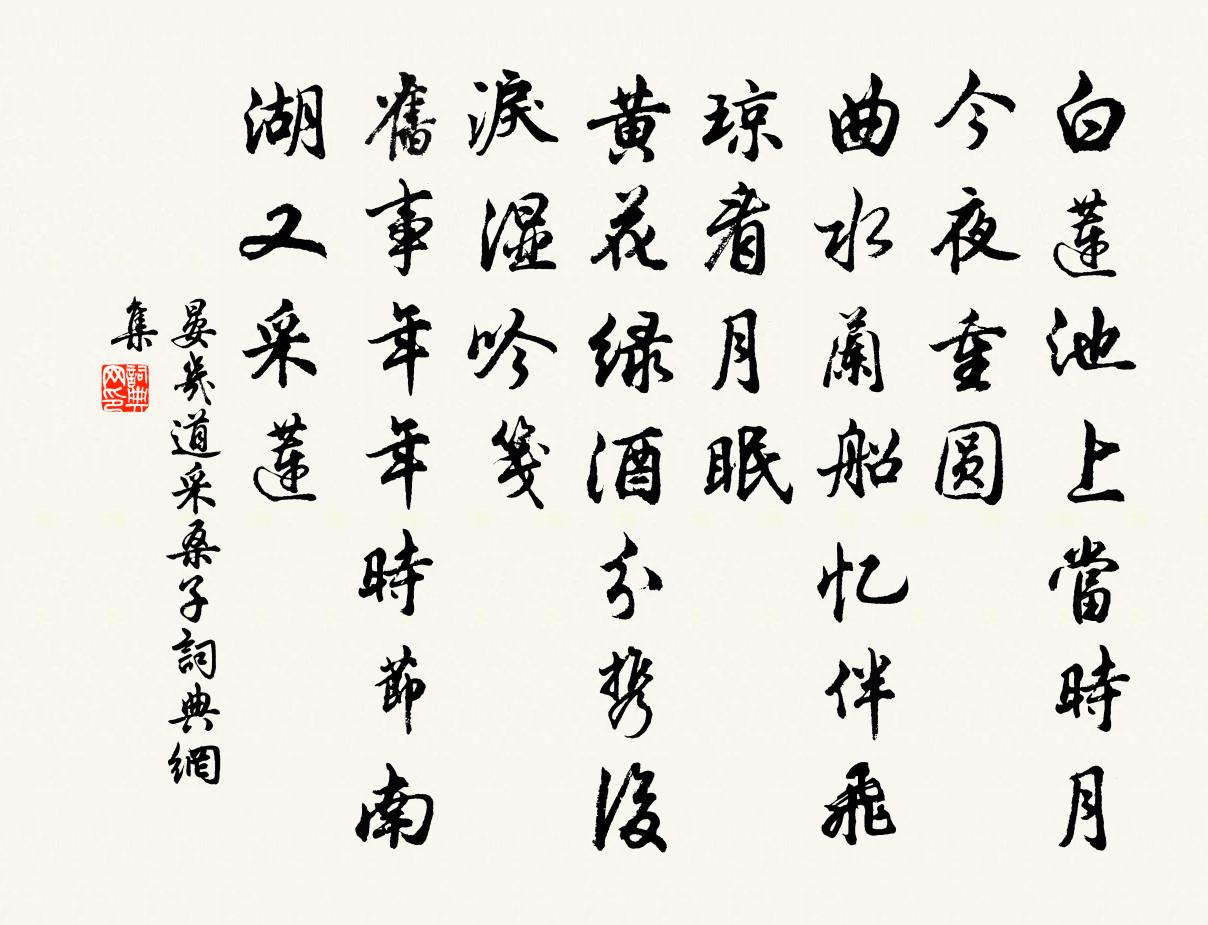 白蓮池上當時月
今夜重圆
曲水蘭船忆伴飛
琼看月眠
黄花绿酒分携後
淚湿吟笺
舊事年年時節南
湖又采蓮
晏幾道采桑子詞典網
集
詞典网印